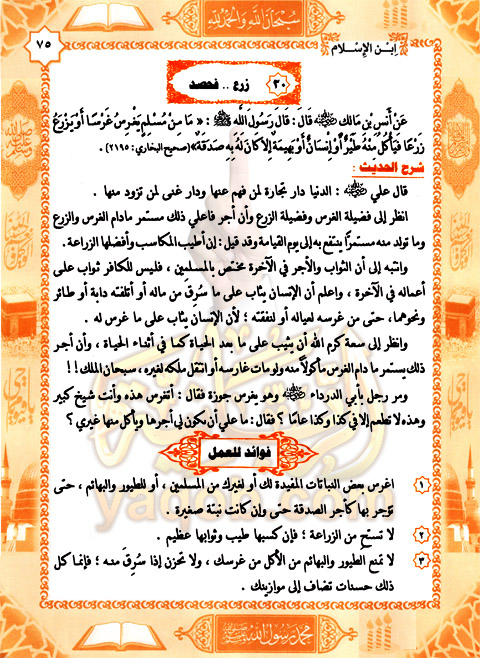 سبحان الله والحمد لله
ابن الإسلام
٧٥
٣٠ زرع .. فحصد
عَنْ أَنَسِ بْنِ مَالكٍ ﷺ قَالَ : قَالَ رَسُولُ اللَّهِ ﷺ : « مَا مِنْ مُسْلِمٍ يَغْرِسُ غَرْسًا أَوْ يَزْرَعُ
زَرْعًا فَيَأْكُلُ مِنْهُ طَيْرٌ أَوْ إِنْسَانٌ أَوْ بَهِيمَةٌ إِلاَّ كَانَ لَهُ بِهِ صَدَقَةٌ » (صحيح البخاري: ٢١٩٥) .
شرح الحديث :
قال علي ﷺ : الدنيا دار تجارة لمن فهم عنها ودار غنى لمن تزود منها .
انظر إلى فضيلة الغرس وفضيلة الزرع وأن أجر فاعلي ذلك مستمر مادام الغرس والزرع
وما تولد منه مستمرًا ينتفع به إلى يوم القيامة وقد قيل : إن أطيب المكاسب وأفضلها الزراعة .
وانتبه إلى أن الثواب والأجر في الآخرة مختص بالمسلمين ، فليس للكافر ثواب على
أعماله في الآخرة ، واعلم أن الإنسان يثاب على ما سُرِقَ من ماله أو أتلفته دابة أو طائر
ونحوهما، حتى من غرسه لعياله أو لنفقته ؛ لأن الإنسان يثاب على ما غرس له .
وانظر إلى سعة كرم الله أن يثيب على ما بعد الحياة كما في أثناء الحياة ، وأن أجر
ذلك يستمر ما دام الغرس مأكولاً منه ولو مات غارسه أو انتقل ملكه لغيره ، سبحان الملك !!
ومر رجل بأبي الدرداء ﷺ وهو يغرس جوزة فقال : أتغرس هذه وأنت شيخ كبير
وهذه لا تطعم إلا في كذا وكذا عامًا ؟ فقال : ما علي أن يكون لي أجرها ويأكل منها غيري ؟
فوائد للعمل
١ اغرس بعض النباتات المفيدة لك أو لغيرك من المسلمين ، أو للطيور والبهائم ، حتى
تؤجر بها كأجر الصدقة حتى وإن كانت نبتة صغيرة .
٢ لا تستح من الزراعة ؛ فإن كسبها طيب وثوابها عظيم .
٣ لا تمنع الطيور والبهائم من الأكل من غرسك ، ولا تحزن إذا سُرِقَ منه ؛ فإنما كل
ذلك حسنات تضاف إلى موازينك .
محمد رسول الله